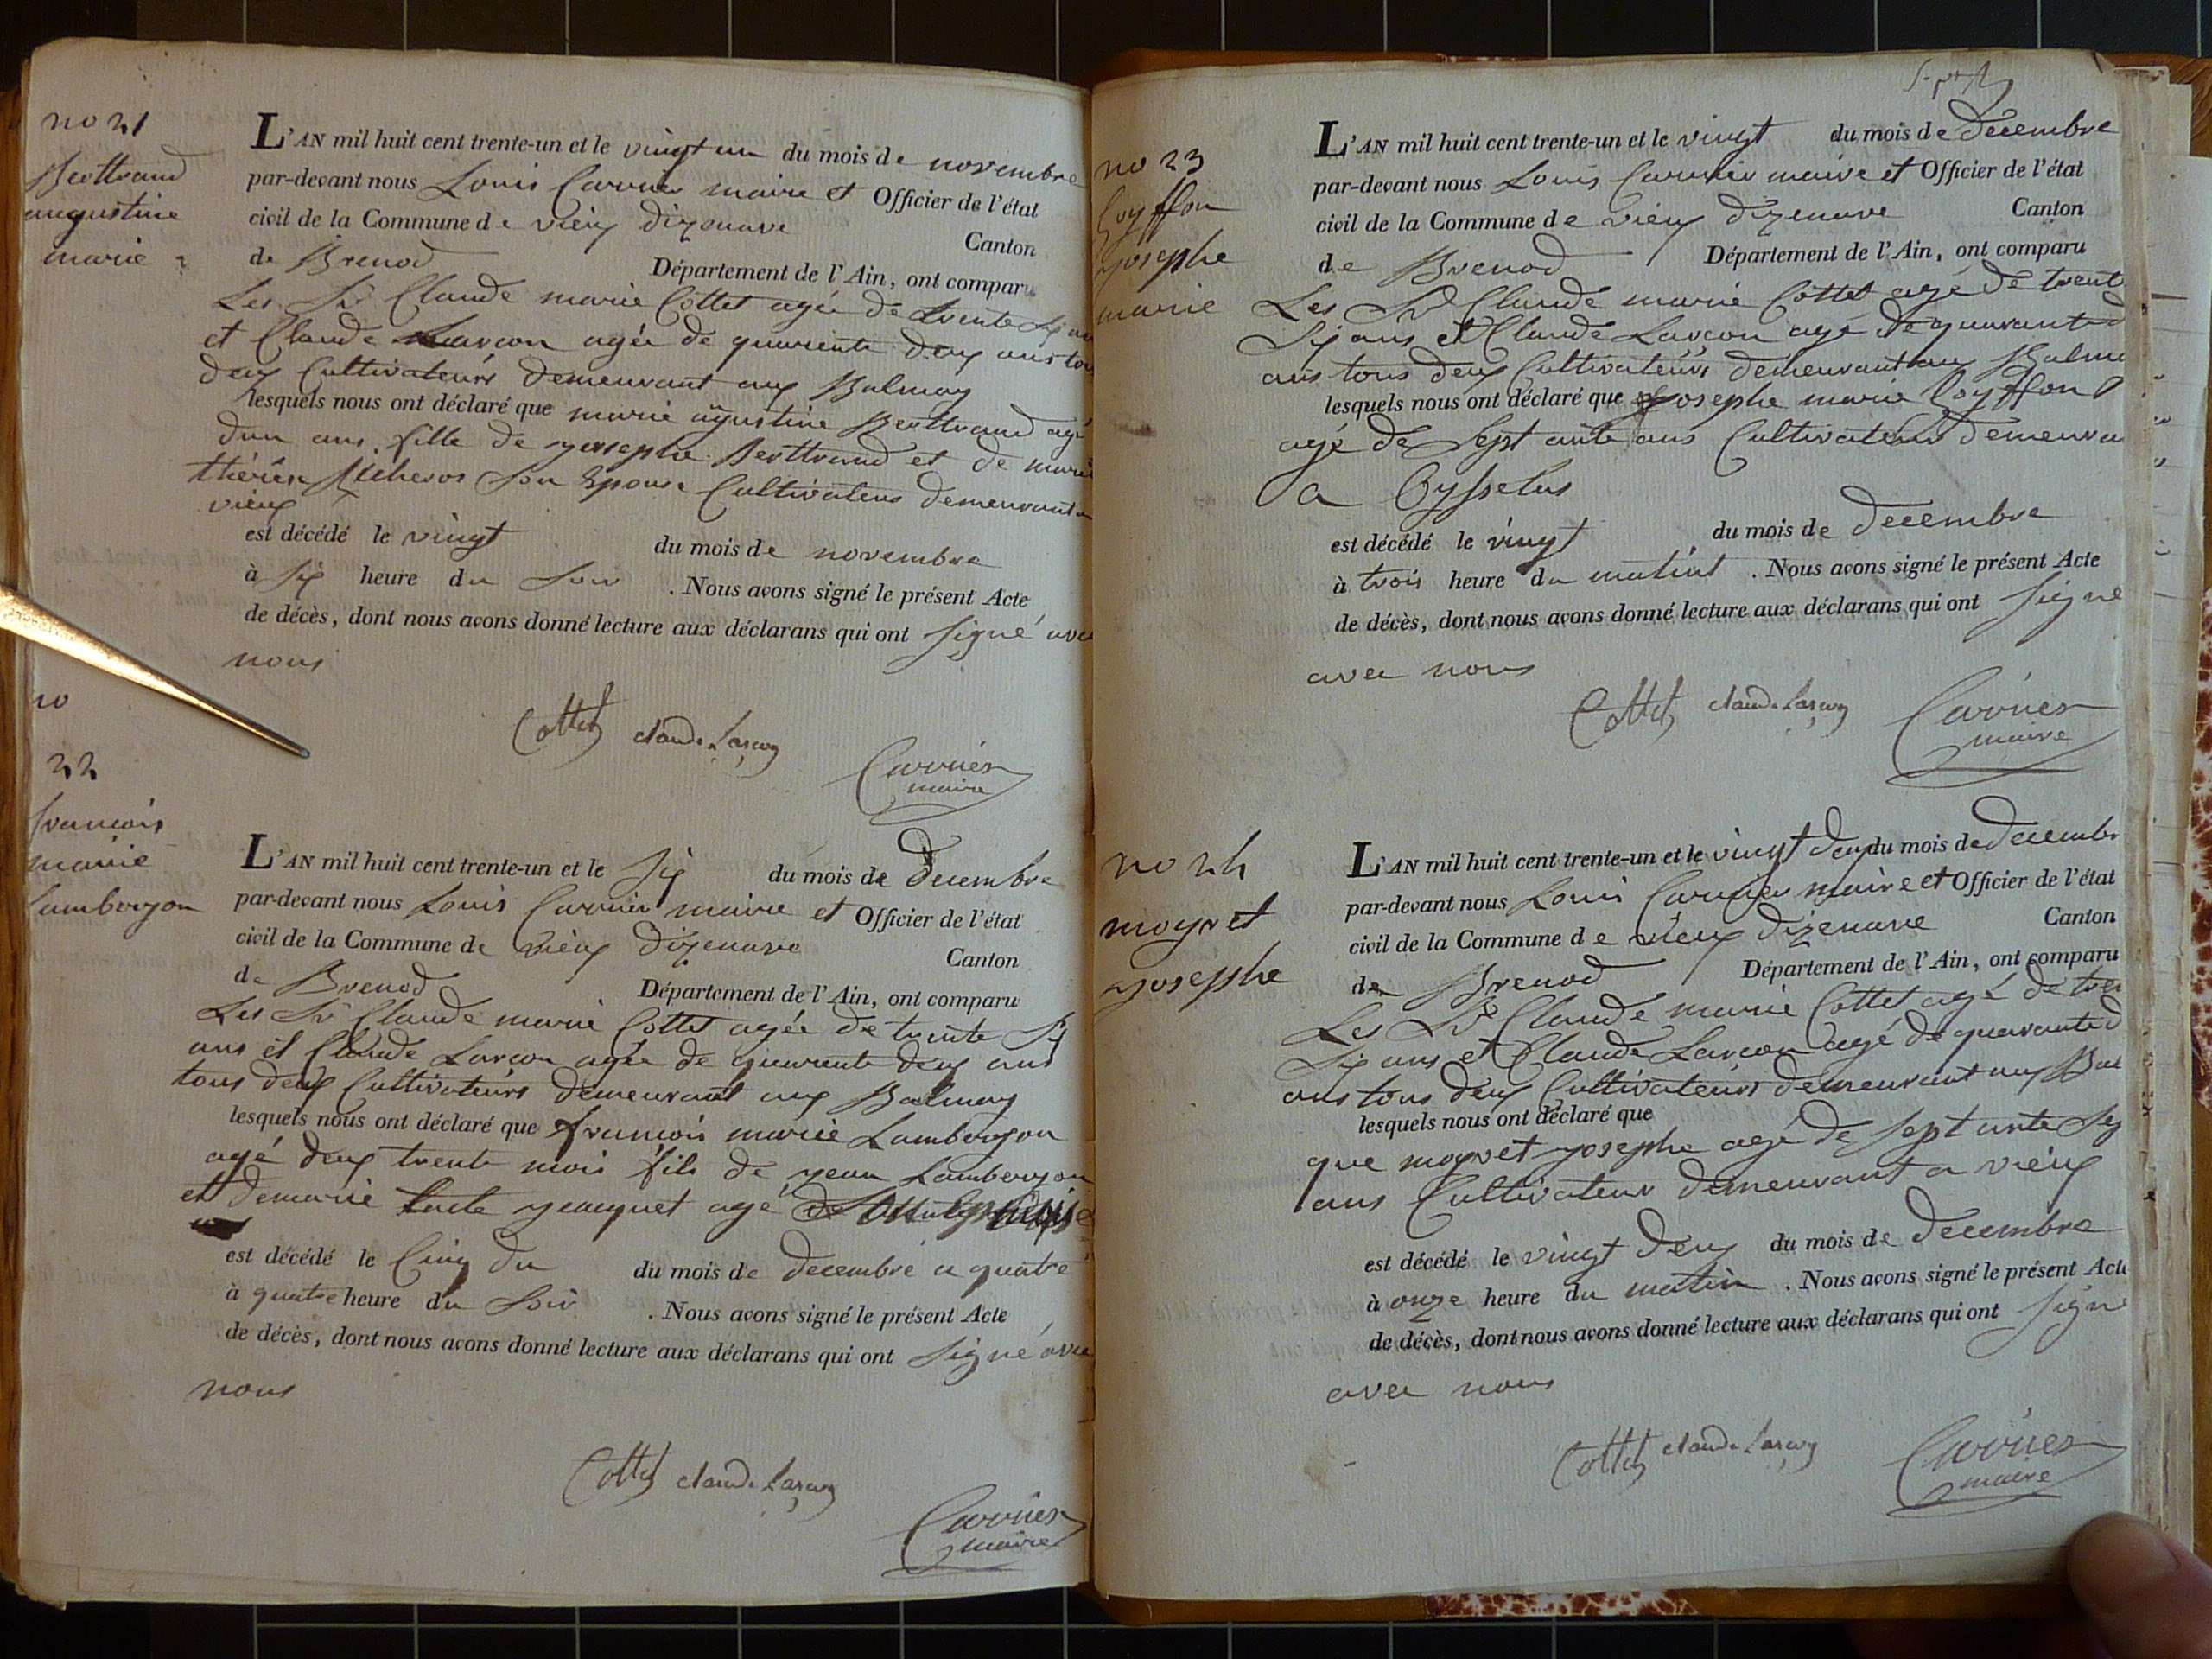 no 21
Berttrand
augustine
marie
L'AN mil huit cent trente-un et le vingt un du mois de novembre
par-devant nous Louis Carrier maire et Officier de l'état
civil de la Commune de vieu dizenave Canton
de Brenod Département de l'Ain, ont comparu
Les Sr Claude marie Cottet agée de trente
et Claude Larcon agée de quarente deux ans
deux Cultivateurs demeurant aux Balmay
lesquels nous ont déclaré que marie agustine Berttrand agé
dun ans fille de yosephe Berttrand et de marie
son Epouse Cultivateur demeurant a
vieux
est décédé le vingt du mois de novembre
à six heure du Soir . Nous avons signé le présent Acte
de décès, dont nous avons donné lecture aux déclarans qui ont signé avec
nous
Cottet claude Larçon
Carrier
maire
no
22
francois
marie
Lambergon
L'AN mil huit cent trente-un et le six du mois de Decembre
par-devant nous Louis Carrier maire et Officier de l'état
civil de la Commune de vieux dizenave Canton
de Brenod Département de l'Ain, ont comparu
Les Sr Claude marie Cottet agée de trente six
ans et Claude Larcon agée de quarente deux ans
tous deux Cultivateurs demeurant aux Balmay
lesquels nous ont déclaré que francois marie Lambergon
agé deux trente mois fils de yean Lambergon
et demarie yacquet agé
est décédé le Cinq du du mois de decembre a quatre
à quatre heure du Soir . Nous avons signé le présent Acte
de décès, dont nous avons donné lecture aux déclarans qui ont signé avec
nous
Cottet claude Larçon
Carrier
maire
no 23
Coyffon
yosephe
marie
L'AN mil huit cent trente-un et le vingt du mois de decembre
par-devant nous Louis Carrier maire et Officier de l'état
civil de la Commune de vieux dizenave Canton
de Brenod Département de l'Ain, ont comparu
Les Sr Claude marie Cottet agé de trente
Six ans et Claude Larcon agé de quarante
ans tous deux Cultivateurs demeurant aux Balma
lesquels nous ont déclaré que yosephe marie Coyffon
agé de Sept ante ans Cultivateur demeura
a Oysselas
est décédé le vingt du mois de decembre
à trois heure du matint . Nous avons signé le présent Acte
de décès, dont nous avons donné lecture aux déclarans qui ont signe
avec nous
Cottet claude Larçon Carrier
maire
no 24
moyret
yosephe
L'AN mil huit cent trente-un et le vingt deux du mois de decembr
par-devant nous Louis Carrier maire et Officier de l'état
civil de la Commune de vieux dizenave Canton
de Brenod Département de l'Ain, ont comparu
Les Sr Claude marie Cottet agé de tren
Six ans et Claude Larcon agé de quarante d
ans tous deux Cultivateurs demeurant aux Bal
lesquels nous ont déclaré que
que moyret yosephe agé de Sept ante Six
ans Cultivateur demeurant a vieux
est décédé le vingt deux du mois de decembre
à onze heure du matin . Nous avons signé le présent Acte
de décès, dont nous avons donné lecture aux déclarans qui ont Signe
avec nous
Cottet claude Larçon Carrier
maire